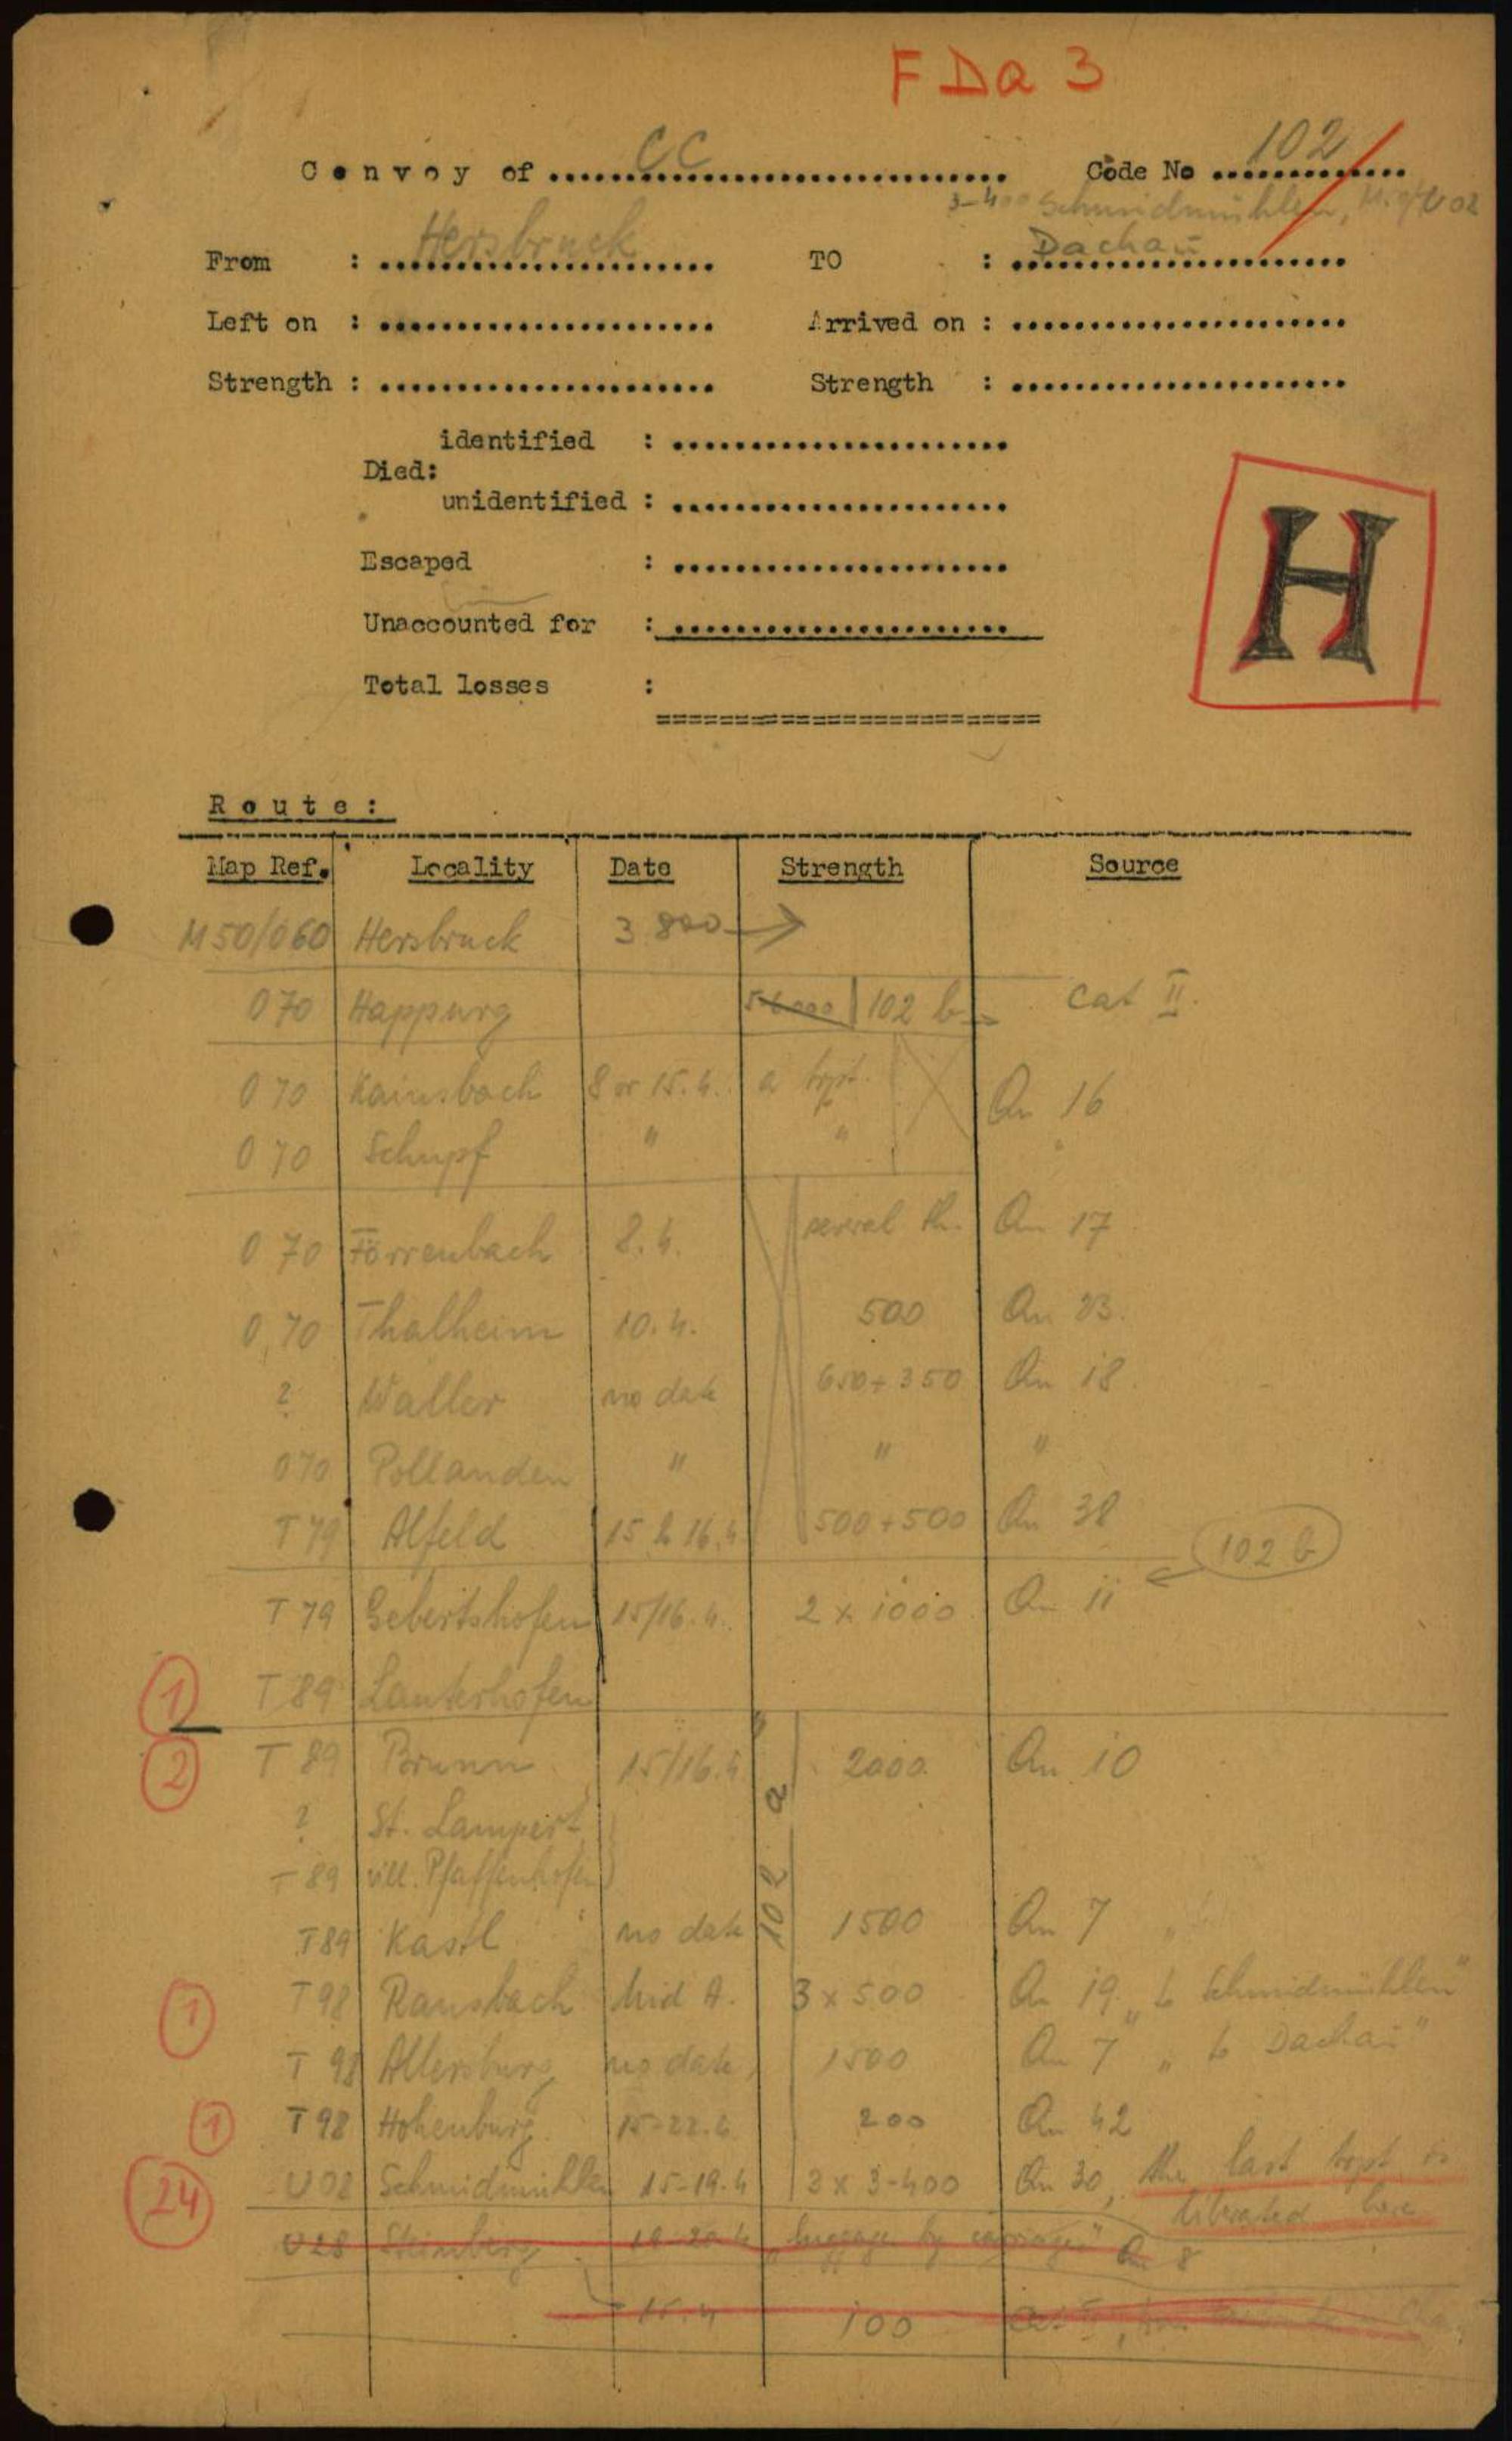 F Da 3
Convoy of ........CC........ Code No ....102....
3-400 Schmidmühlen, U 02
From : Hersbruck TO : Dachau
Left on : ...................... Arrived on : ......................
Strength : ...................... Strength : ......................
identified : ......................
Died:
unidentified : ......................
Escaped : ......................
H
Unaccounted for : ......................
Total losses :
=========================
Route:
Map Ref. Locality Date Strength Source
M50/060 Hersbruck 3 800 →
070 Happurg 102 b Cat II.
070 Kainsbach 8 or 15.4. a trpt. An 16
070 Schupf " " "
070 Förrenbach 8.4. several th. An 17
070 Thalheim 10.4. 500 An 23.
? Waller no date 650+350 An 18.
070 Pollanden " " "
T79 Alfeld 15 & 16.4 500+500 An 38
102 b
T79 Gebertshofen 15/16.4. 2 x 1000 An 11
1 T89 Lauterhofen
2 T89 Brunn 15/16.4 2000 An 10
? St. Lampert
T89 vill. Pfaffenhofen
102 a
T89 Kastl no date 1500 An 7
1 T98 Ransbach Mid A. 3 x 500 An 19 "to Schmidmühlen"
T98 Allersburg no date 1500 An 7 "to Dachau"
1 T98 Hohenburg 15-22.4 200 An 42
24 U02 Schmidmühlen 15-19.4 3 x 3-400 An 30, the last trpt is
liberated here
U28 19-20.4 "luggage by carriages" An 8
15.4 100